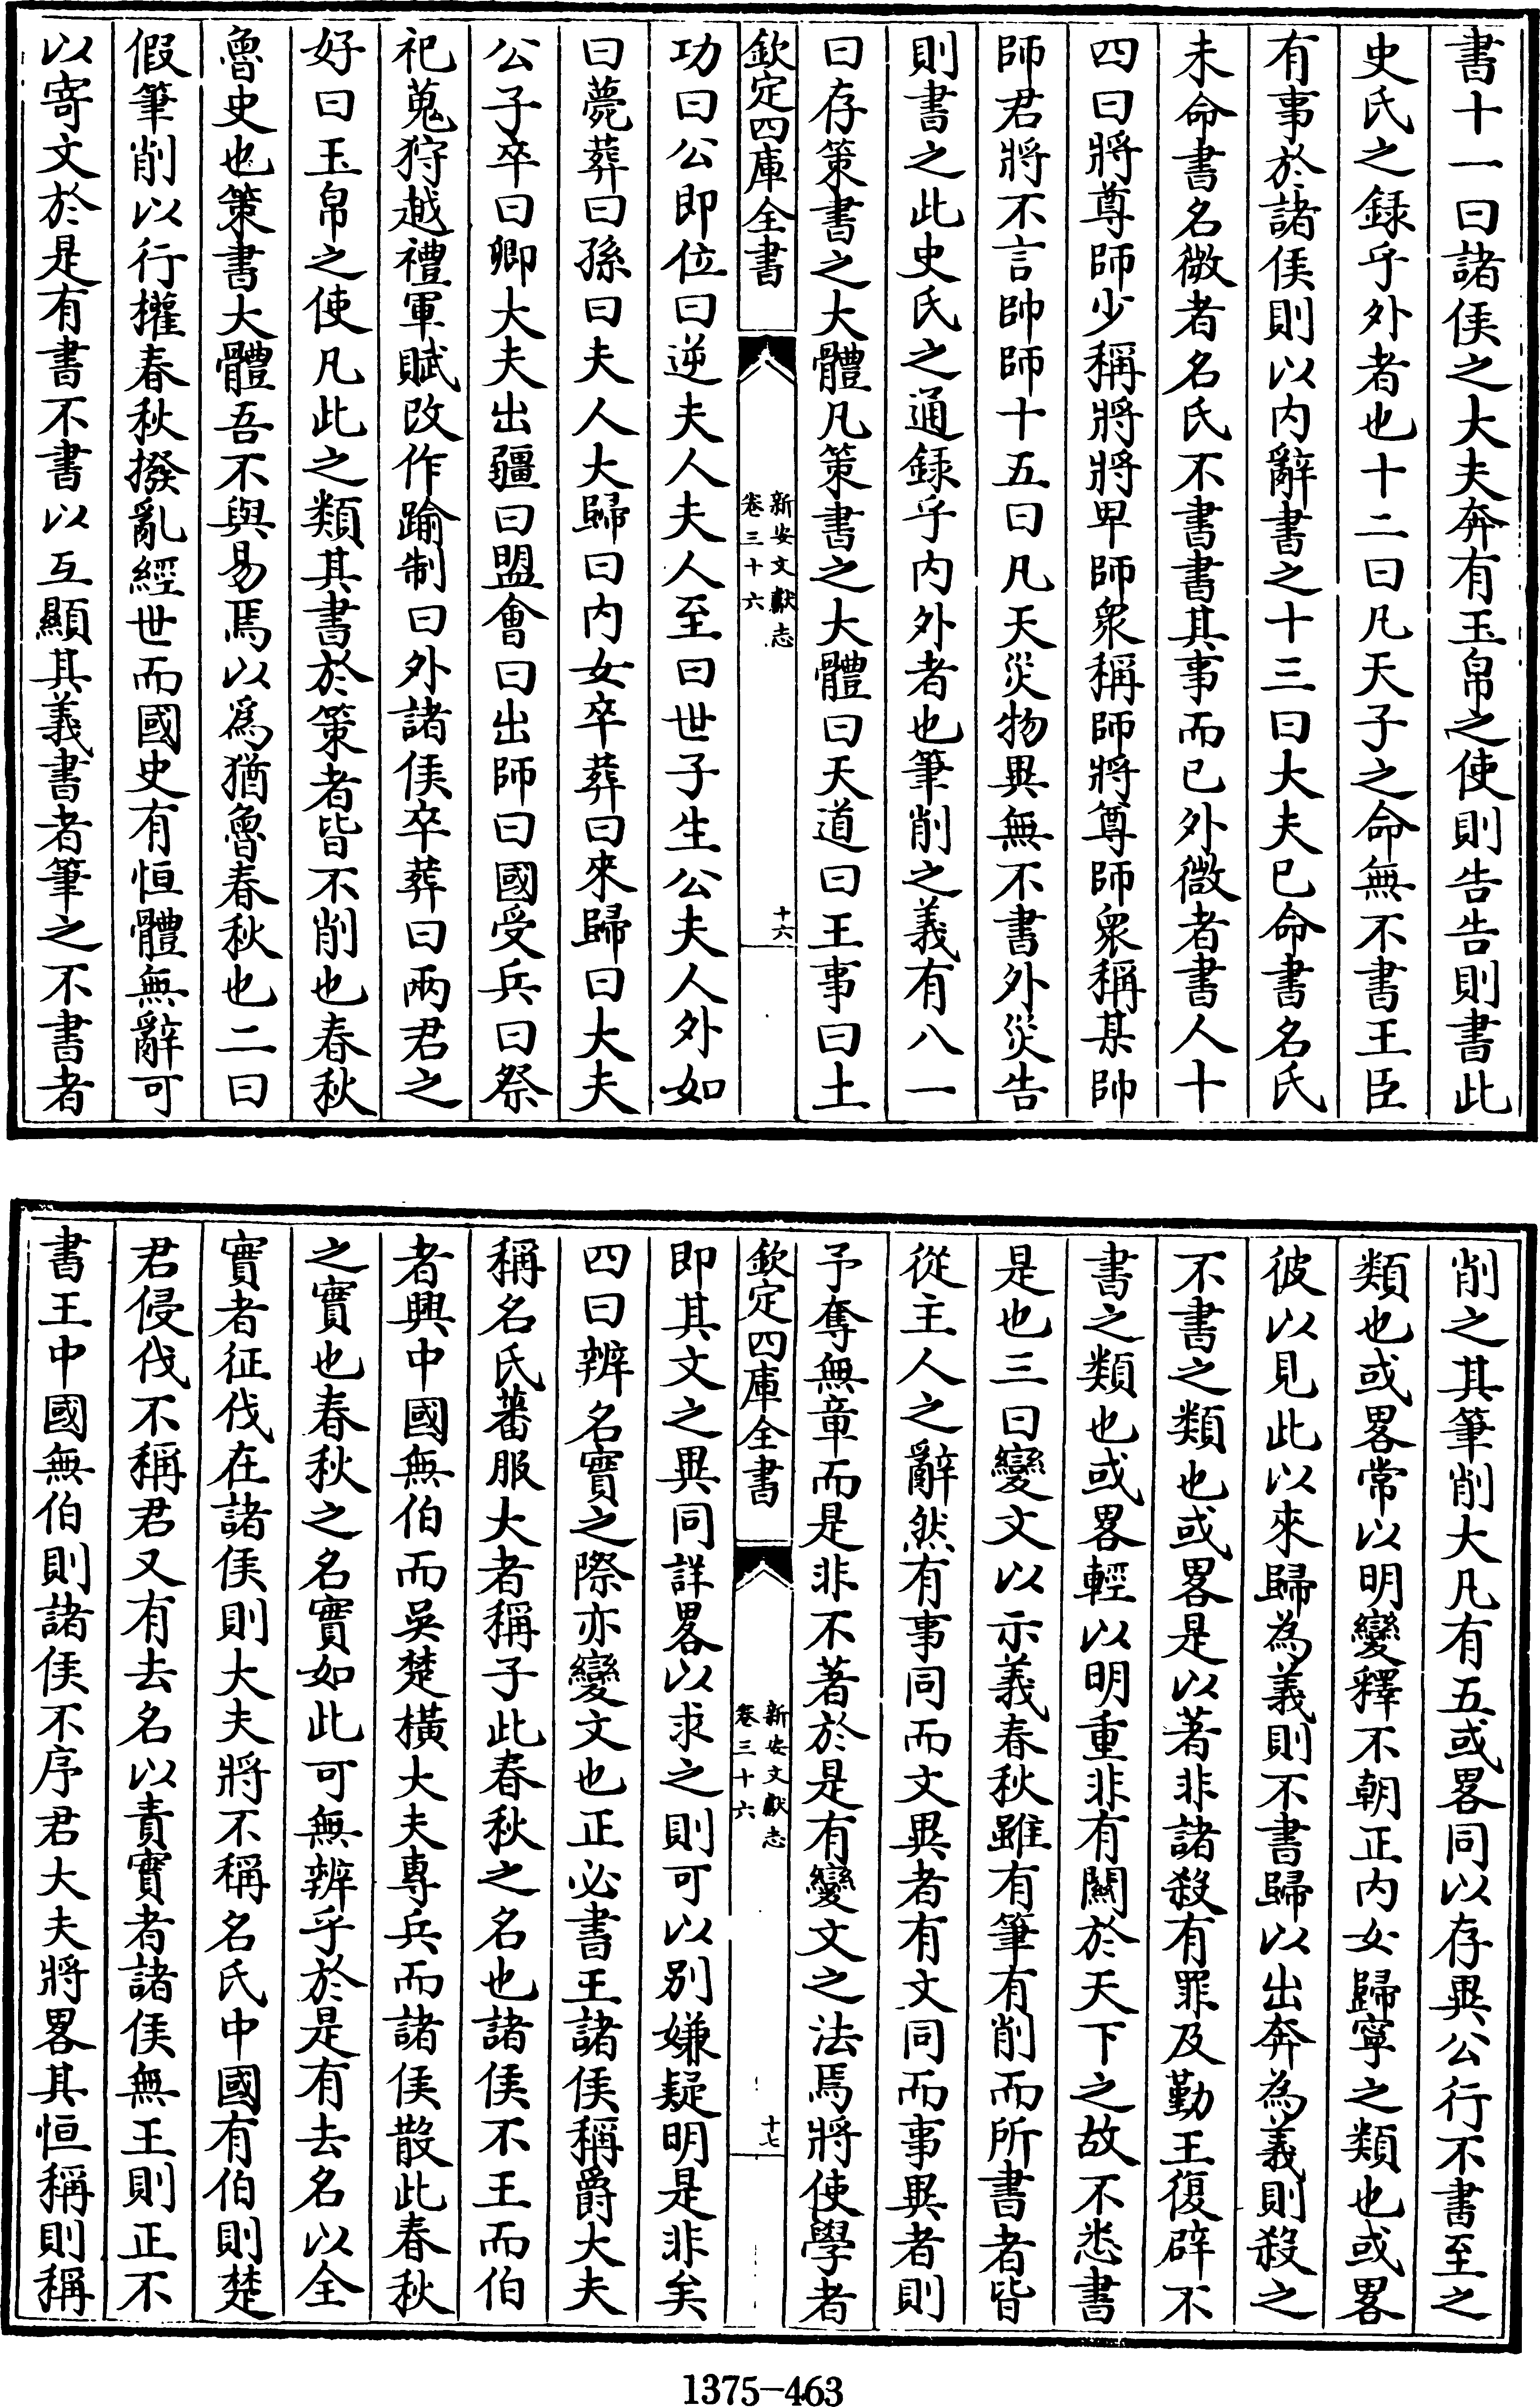 書十一曰諸侯之大夫奔有玉帛之使則告告則書此
史氏之録乎外者也十二曰凡天子之命無不書王臣
有事於諸侯則以内辭書之十三曰大夫已命書名氏
未命書名微者名氏不書書其事而已外微者書人十
四曰將尊師少稱將將卑師衆稱師將尊師衆稱某帥
師君將不言帥師十五曰凡天災物異無不書外災告
則書之此史氏之通録乎内外者也筆削之義有八一
曰存策書之大體凡策書之大體曰天道曰王事曰土
欽定四庫全書
新安文獻志
卷三十六
十六
功曰公即位曰逆夫人夫人至曰世子生公夫人外如
曰薨葬曰孫曰夫人大歸曰内女卒葬曰來歸曰大夫
公子卒曰卿大夫出疆曰盟會曰出師曰國受兵曰祭
祀蒐狩越禮軍賦改作踰制曰外諸侯卒葬曰兩君之
好曰玉帛之使凡此之類其書於策者皆不削也春秋
魯史也策書大體吾不與易焉以爲猶魯春秋也二曰
假筆削以行權春秋撥亂經世而國史有恒體無辭可
以寄文於是有書不書以互顯其義書者筆之不書者
削之其筆削大凡有五或畧同以存異公行不書至之
類也或畧常以明變釋不朝正内女歸寧之類也或畧
彼以見此以來歸為義則不書歸以出奔為義則殺之
不書之類也或畧是以著非諸殺有罪及勤王復辟不
書之類也或畧輕以明重非有關於天下之故不悉書
是也三曰變文以示義春秋雖有筆有削而所書者皆
從主人之辭然有事同而文異者有文同而事異者則
予奪無章而是非不著於是有變文之法焉將使學者
欽定四庫全書
新安文獻志
卷三十六
十七
即其文之異同詳畧以求之則可以别嫌疑明是非矣
四曰辨名實之際亦變文也正必書王諸侯稱爵大夫
稱名氏蕃服大者稱子此春秋之名也諸侯不王而伯
者興中國無伯而吳楚橫大夫專兵而諸侯散此春秋
之實也春秋之名實如此可無辨乎於是有去名以全
實者征伐在諸侯則大夫將不稱名氏中國有伯則楚
君侵伐不稱君又有去名以責實者諸侯無王則正不
書王中國無伯則諸侯不序君大夫將畧其恒稱則稱
1375-463